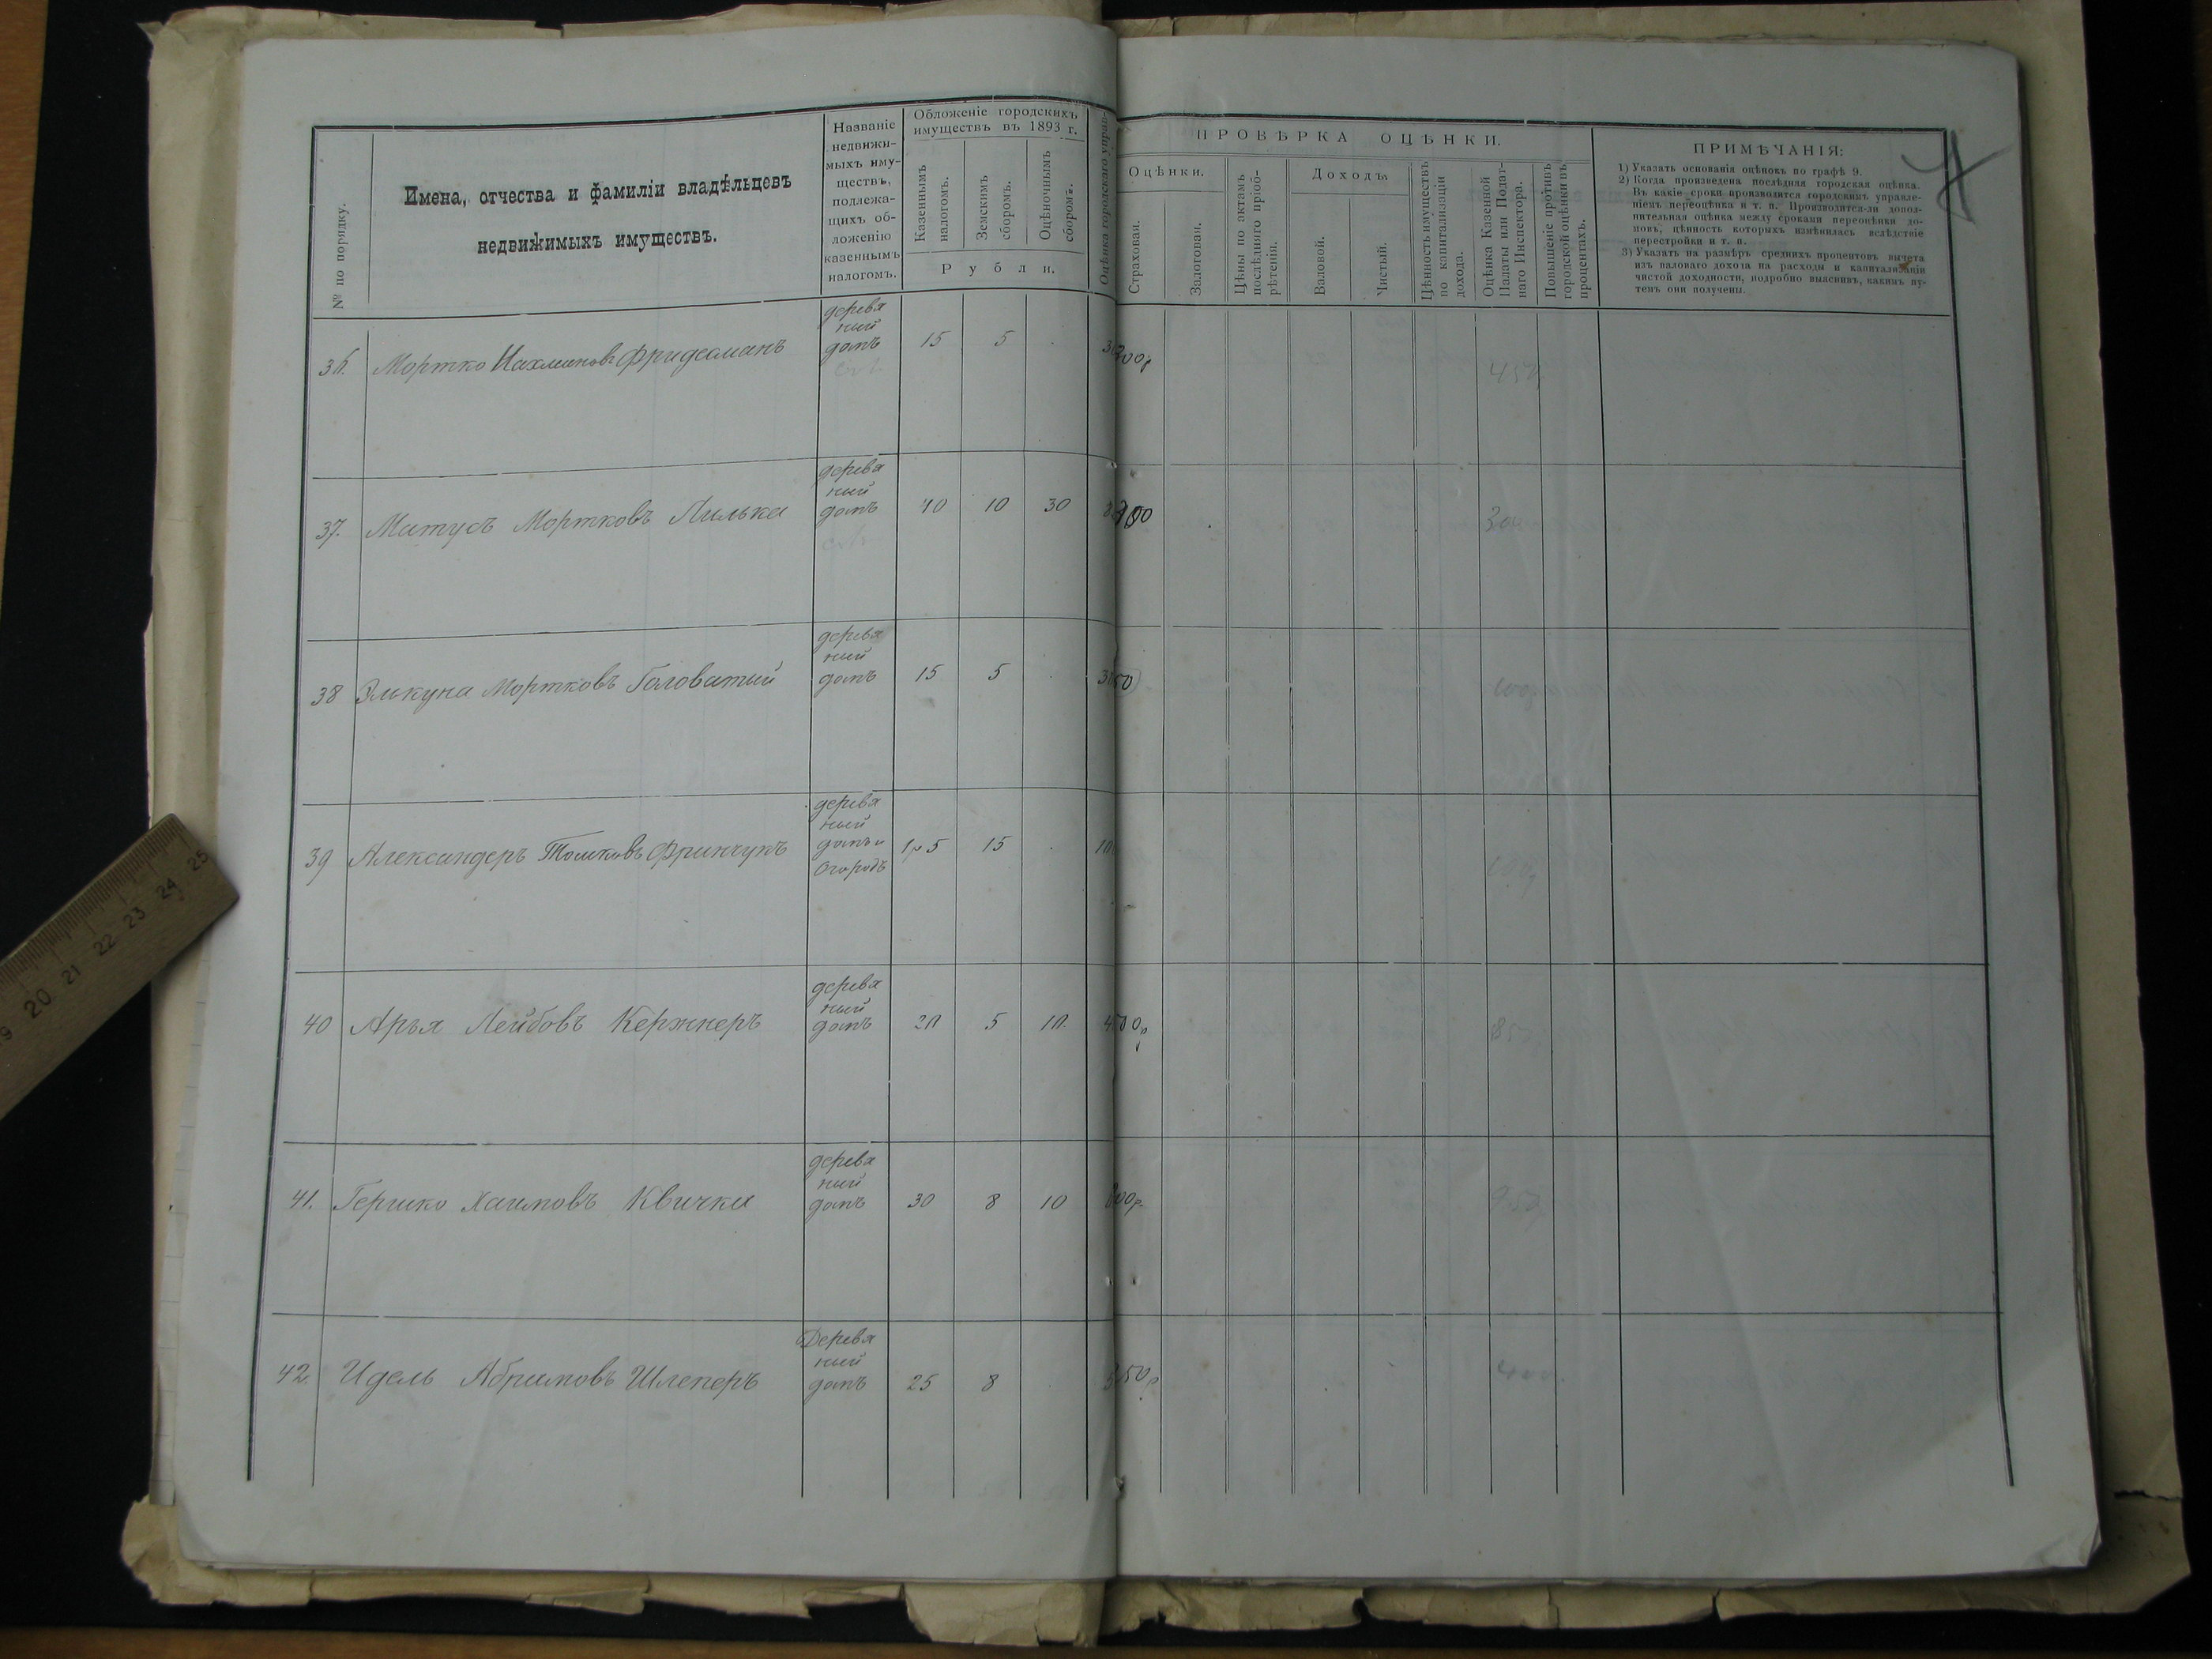 № по порядку.
Имена, отчества и фамиліи владѣльцевъ
недвижимыхъ имуществъ.
Названіе
недвижи-
мыхъ иму-
ществъ,
подлежа-
щихъ об-
ложенію
казеннымъ
налогомъ.
Обложеніе городскихъ
имуществъ въ 1893 г.
Казеннымъ
налогомъ.
Земскимъ
сборомъ.
Оцѣночнымъ
сборомъ.
Рубли.
Оцѣнка городского управ-
ПРОВѢРКА ОЦѢНКИ.
Оцѣнки.
Страховая.
Залоговая.
Цѣны по актамъ
послѣдняго пріоб-
рѣтенія.
Доходъ.
Валовой.
Чистый.
Цѣнность имуществъ
по капитализаціи
дохода.
Оцѣнка Казенной
Палаты или Подат-
наго Инспектора.
Повышеніе противъ
городской оцѣнки въ
процентахъ.
ПРИМѢЧАНІЯ:
1) Указать основанія оцѣнокъ по графѣ 9.
2) Когда произведена послѣдняя городская оцѣнка.
Въ какіе сроки производится городскимъ управле-
ніемъ переоцѣнка и т. п. Производится-ли допол-
нительная оцѣнка между сроками переоцѣнки до-
мовъ, цѣнность которыхъ измѣнилась вслѣдствіе
перестройки и т. п.
3) Указать на размѣръ среднихъ процентовъ вычета
изъ валоваго дохода на расходы и капитализаціи
чистой доходности, подробно выяснивъ, какимъ пу-
темъ они получены.
36. Мортко Нахмановъ Фридманъ деревя ный домъ 15 5
37. Матусъ Мортковъ Лилька деревя ный домъ 40 10 30
38 Элькуна Мортковъ Головатый деревя ный домъ 15 5
39 Александеръ Фринчукъ деревя ный домъ и огородъ 15
40 Арья Лейбовъ Кержнеръ деревя ный домъ 20 5 10
41. Гершко Хаимовъ Квичка деревя ный домъ 30 8 10
42. Идель Абрамовъ Шлеперъ Деревя ный домъ 25 8
19 20 21 22 23 24 25